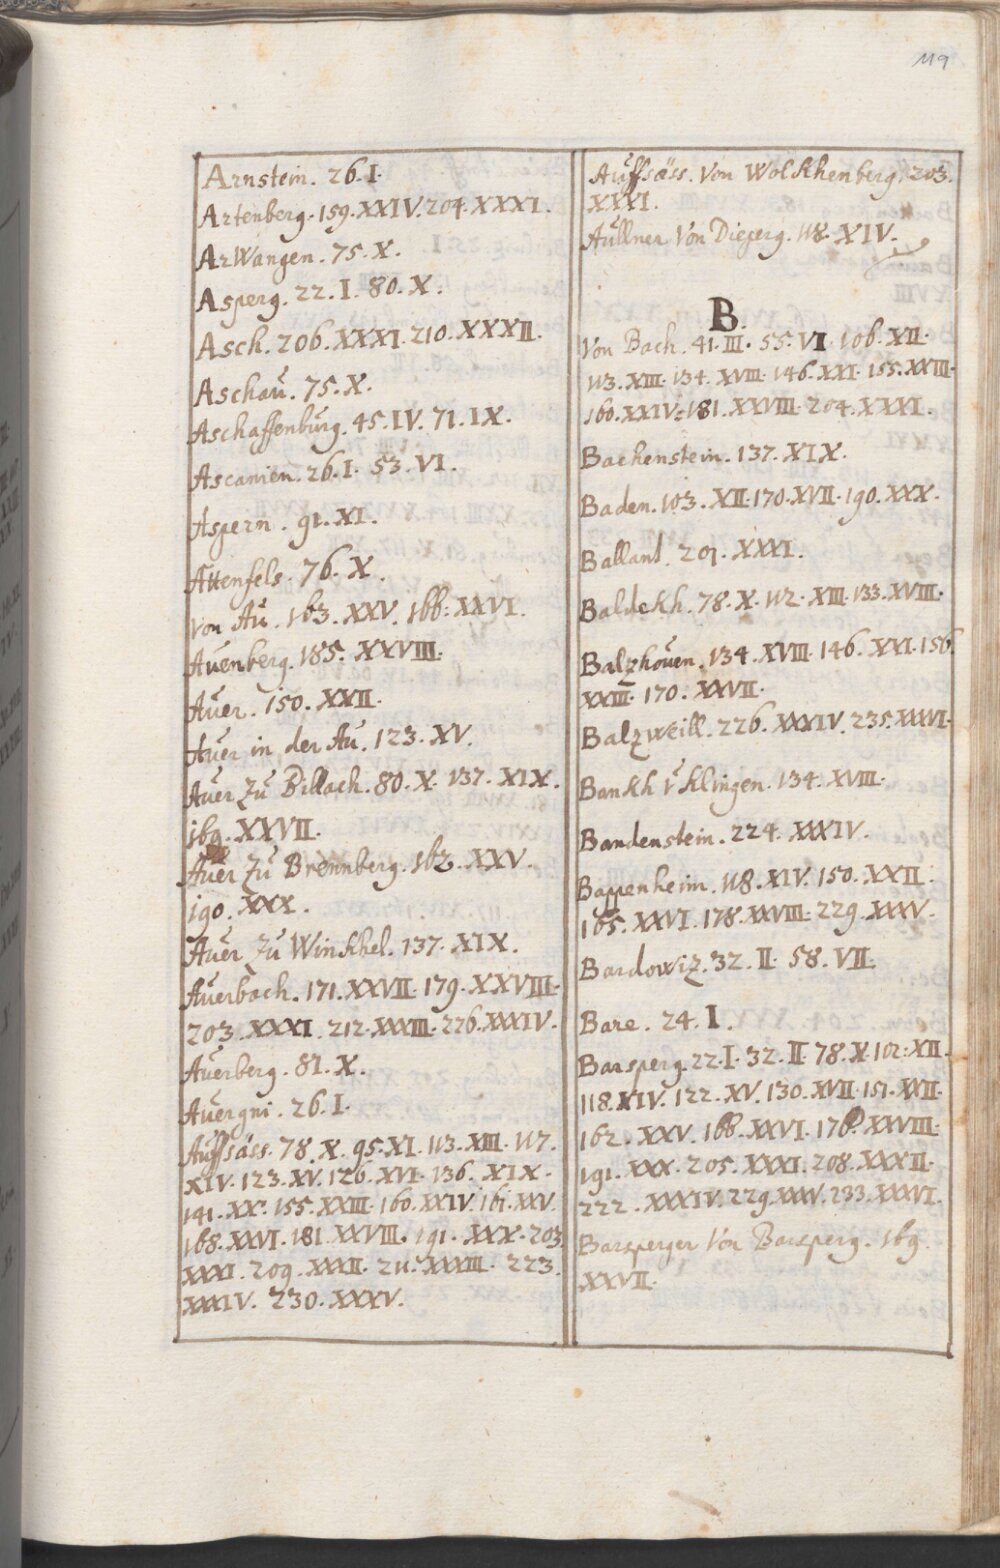 119
Arnstein. 26. I.
Artenberg. 159. XXIV. 204. XXXI.
ArWangen. 75. X.
Asperg. 22. I. 80. X.
Asch. 206. XXXI. 210. XXXII.
Aschaú. 75. X.
Aschaffenbúrg. 45. IV. 71. IX.
Ascanien. 26. I. 53. VI.
Aspern. 91. XI.
Attenfels. 76. X.
Von Aú. 163. XXV. 166. XXVI.
Aúenberg. 185. XXVIII.
Aúer. 150. XXII.
Aúer in der Aú. 123. XV.
Aúer zú Billach. 80. X. 137. XIX.
169. XXVII.
Aúer zú Brennberg. 163. XXV.
190. XXX.
Aúer zú Winkhel. 137. XIX.
Aúerbach. 171. XXVII. 179. XXVIII.
203. XXXI. 212. XXXIII. 226. XXXIV.
Aúerberg. 81. X.
Aúergni. 26. I.
Aúffsäss. 78. X. 95. XI. 113. XIII. 117.
XIV. 123. XV. 126. XVI. 136. XIX.
141. XX. 155. XXIII. 160. XXIV. 161. XXV.
168. XXVI. 181. XXVIII. 191. XXX. 203.
XXXI. 209. XXXII. 211. XXXIII. 223.
XXXIV. 230. XXXV.
Aúffsäss. Von Wolkhenberg. 203.
XXXI.
Aúllner Von Dieperg. 118. XIV.
B.
Von Bach. 41. III. 55. VI. 106. XII.
113. XIII. 134. XVIII. 146. XXI. 155. XXIII.
160. XXIV. 181. XXVIII. 204. XXXI.
Bachenstein. 137. XIX.
Baden. 103. XII. 170. XVII. 190. XXX.
Balland. 201. XXXI.
Baldekh. 78. X. 112. XIII. 133. XVIII.
Balzhoúen. 134. XVIII. 146. XXI. 156.
XXIII. 170. XXVII.
Balzweill. 226. XXXIV. 235. XXXVI.
Bankh v Klingen. 134. XVIII.
Bandenstein. 224. XXXIV.
Bappenheim. 118. XIV. 150. XXII.
165. XXVI. 178. XXVIII. 229. XXXV.
Bardowiz. 32. II. 58. VII.
Bare. 24. I.
Barsperg. 22. I. 32. II. 78. X. 102. XII.
118. XIV. 122. XV. 130. XVII. 151. XXII.
162. XXV. 166. XXVI. 176. XXVIII.
191. XXX. 205. XXXI. 208. XXXII.
222. XXXIV. 229. XXXV. 233. XXXVI.
Barsperger Von Barsperg. 169.
XXVII.